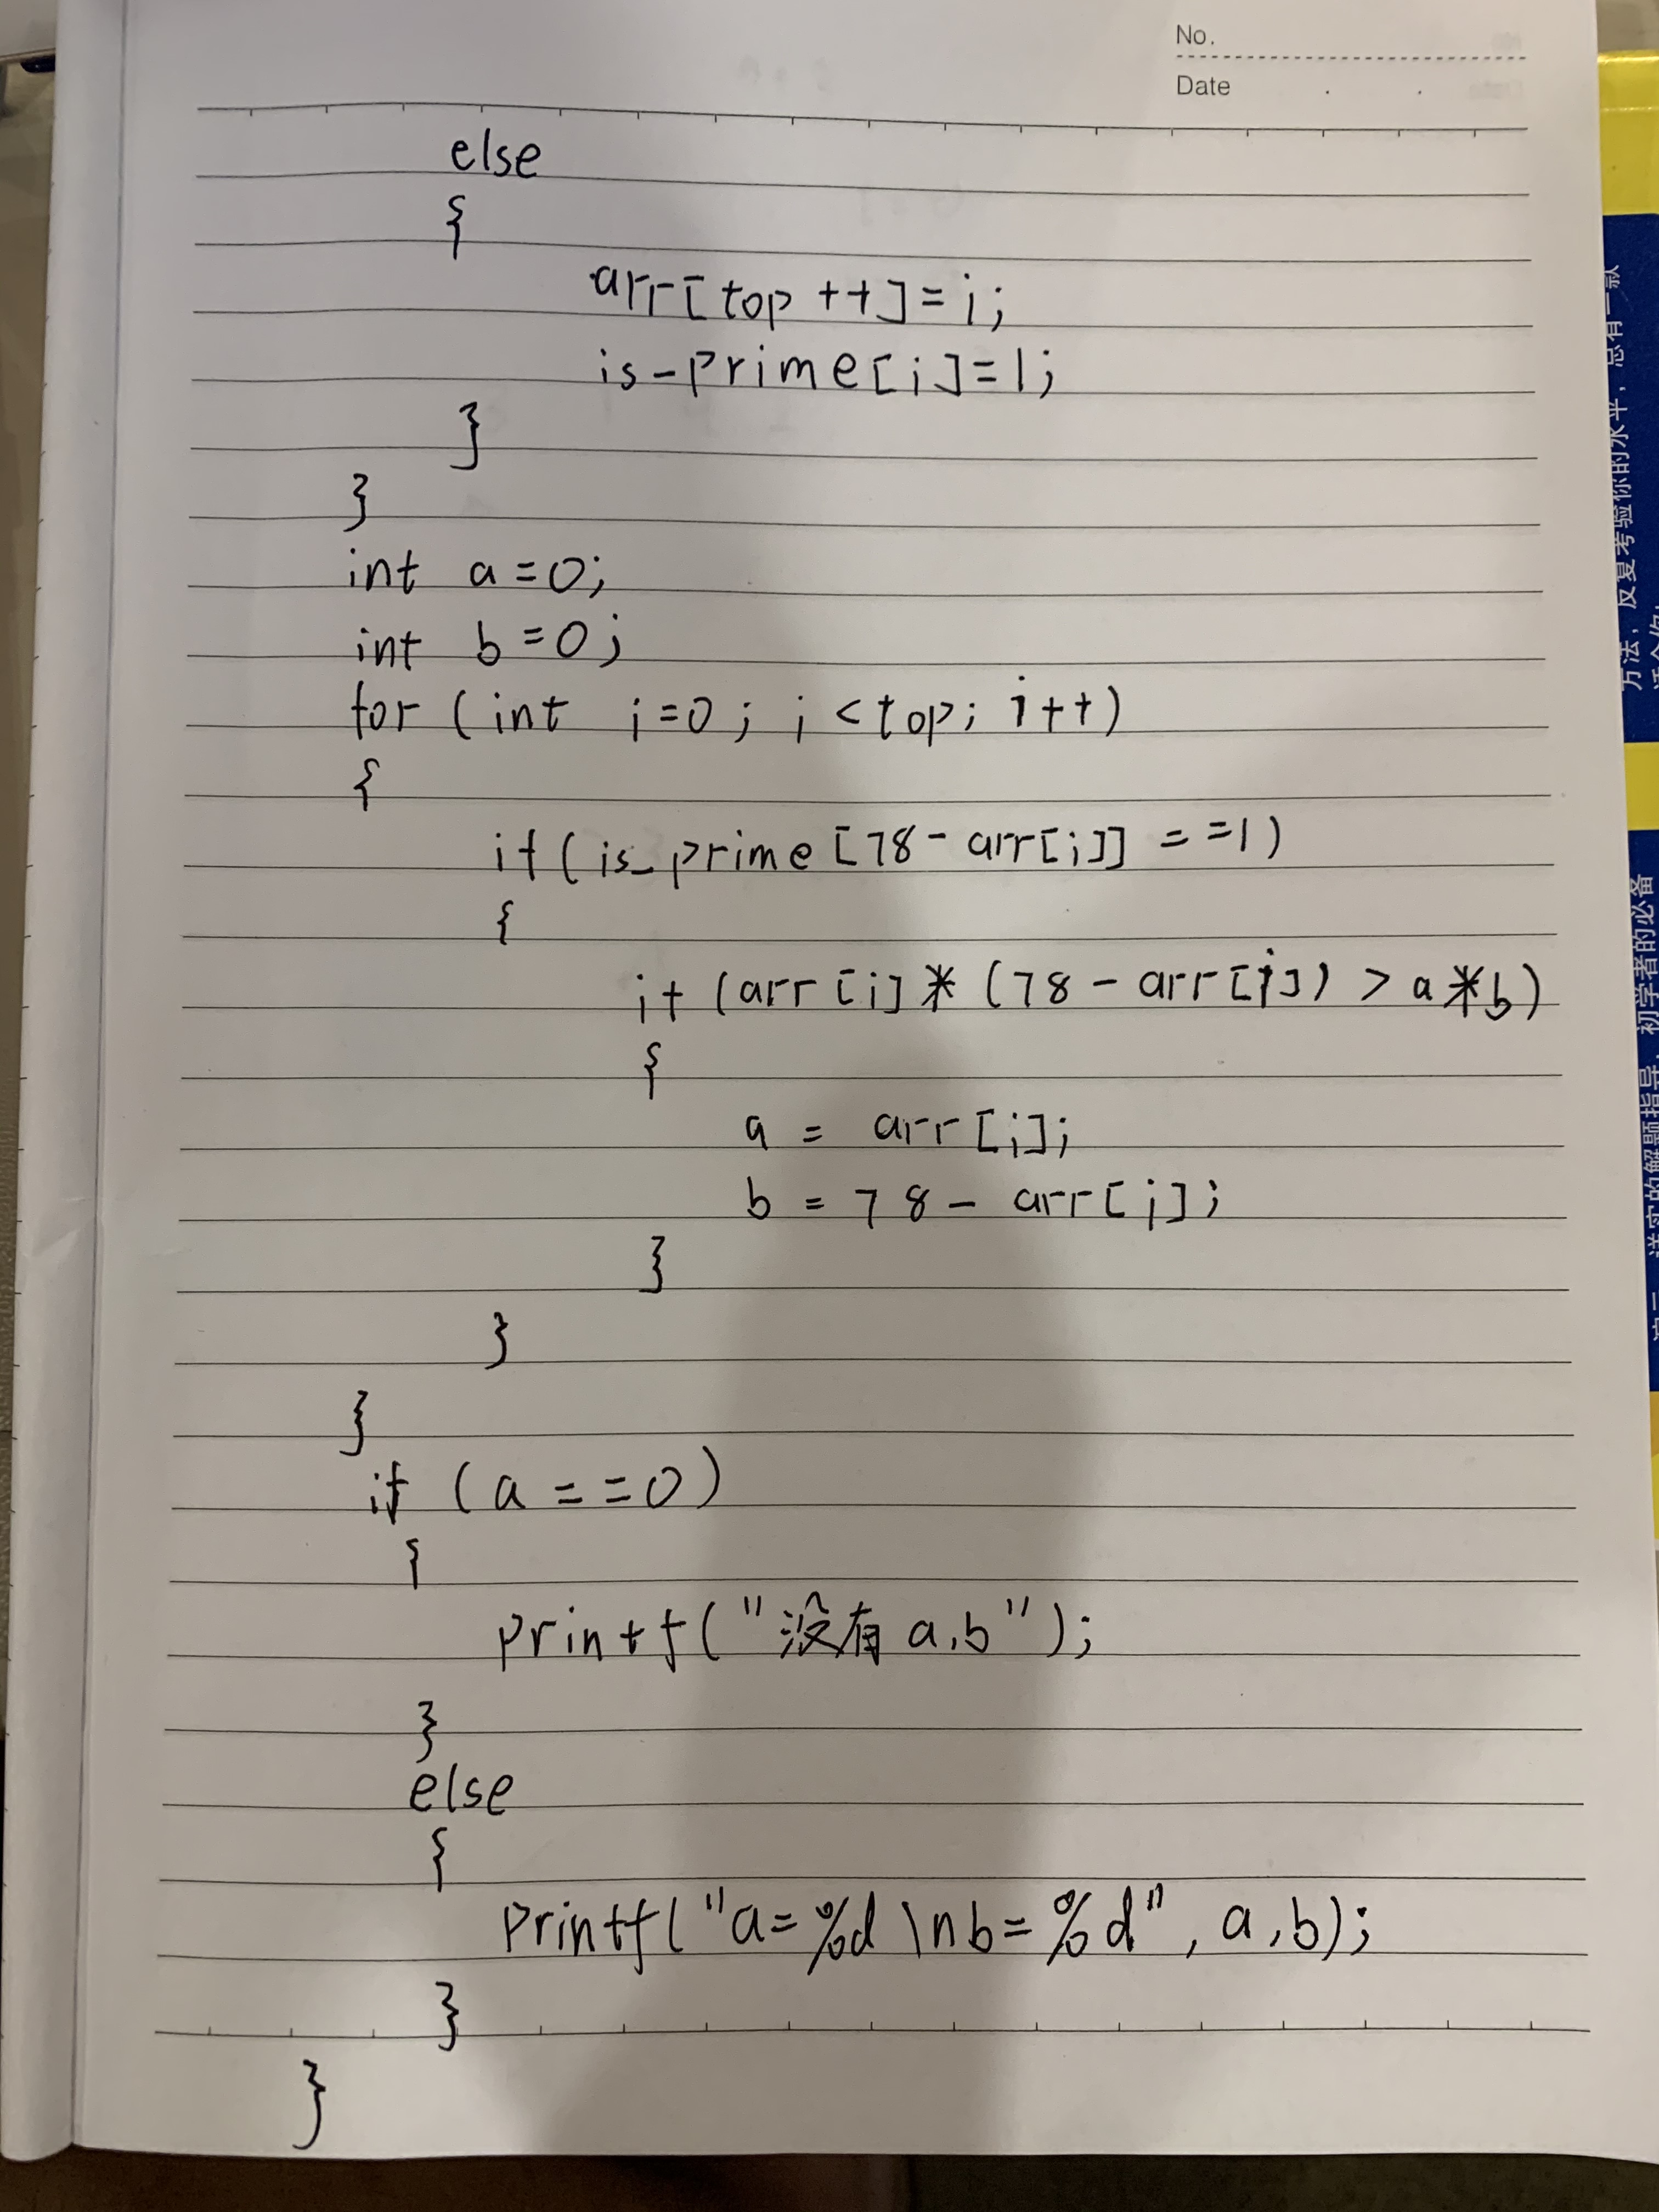 No.
Date
else
{
arr[top ++]=i;
is-prime[i]=1;
}
}
int a=0;
int b=0;
for (int i=0; i <top; i++)
{
if(is_prime[78-arr[i]] ==1)
{
if (arr[i]*(78-arr[i]) > a*b)
{
a = arr[i];
b = 78- arr[i];
}
}
}
if (a ==0)
{
printf("没有a,b");
}
else
{
printf("a=%d\nb=%d", a,b);
}
}
方法，反复考验你的水平，总有一款
详实的解题指导，初学者的必备